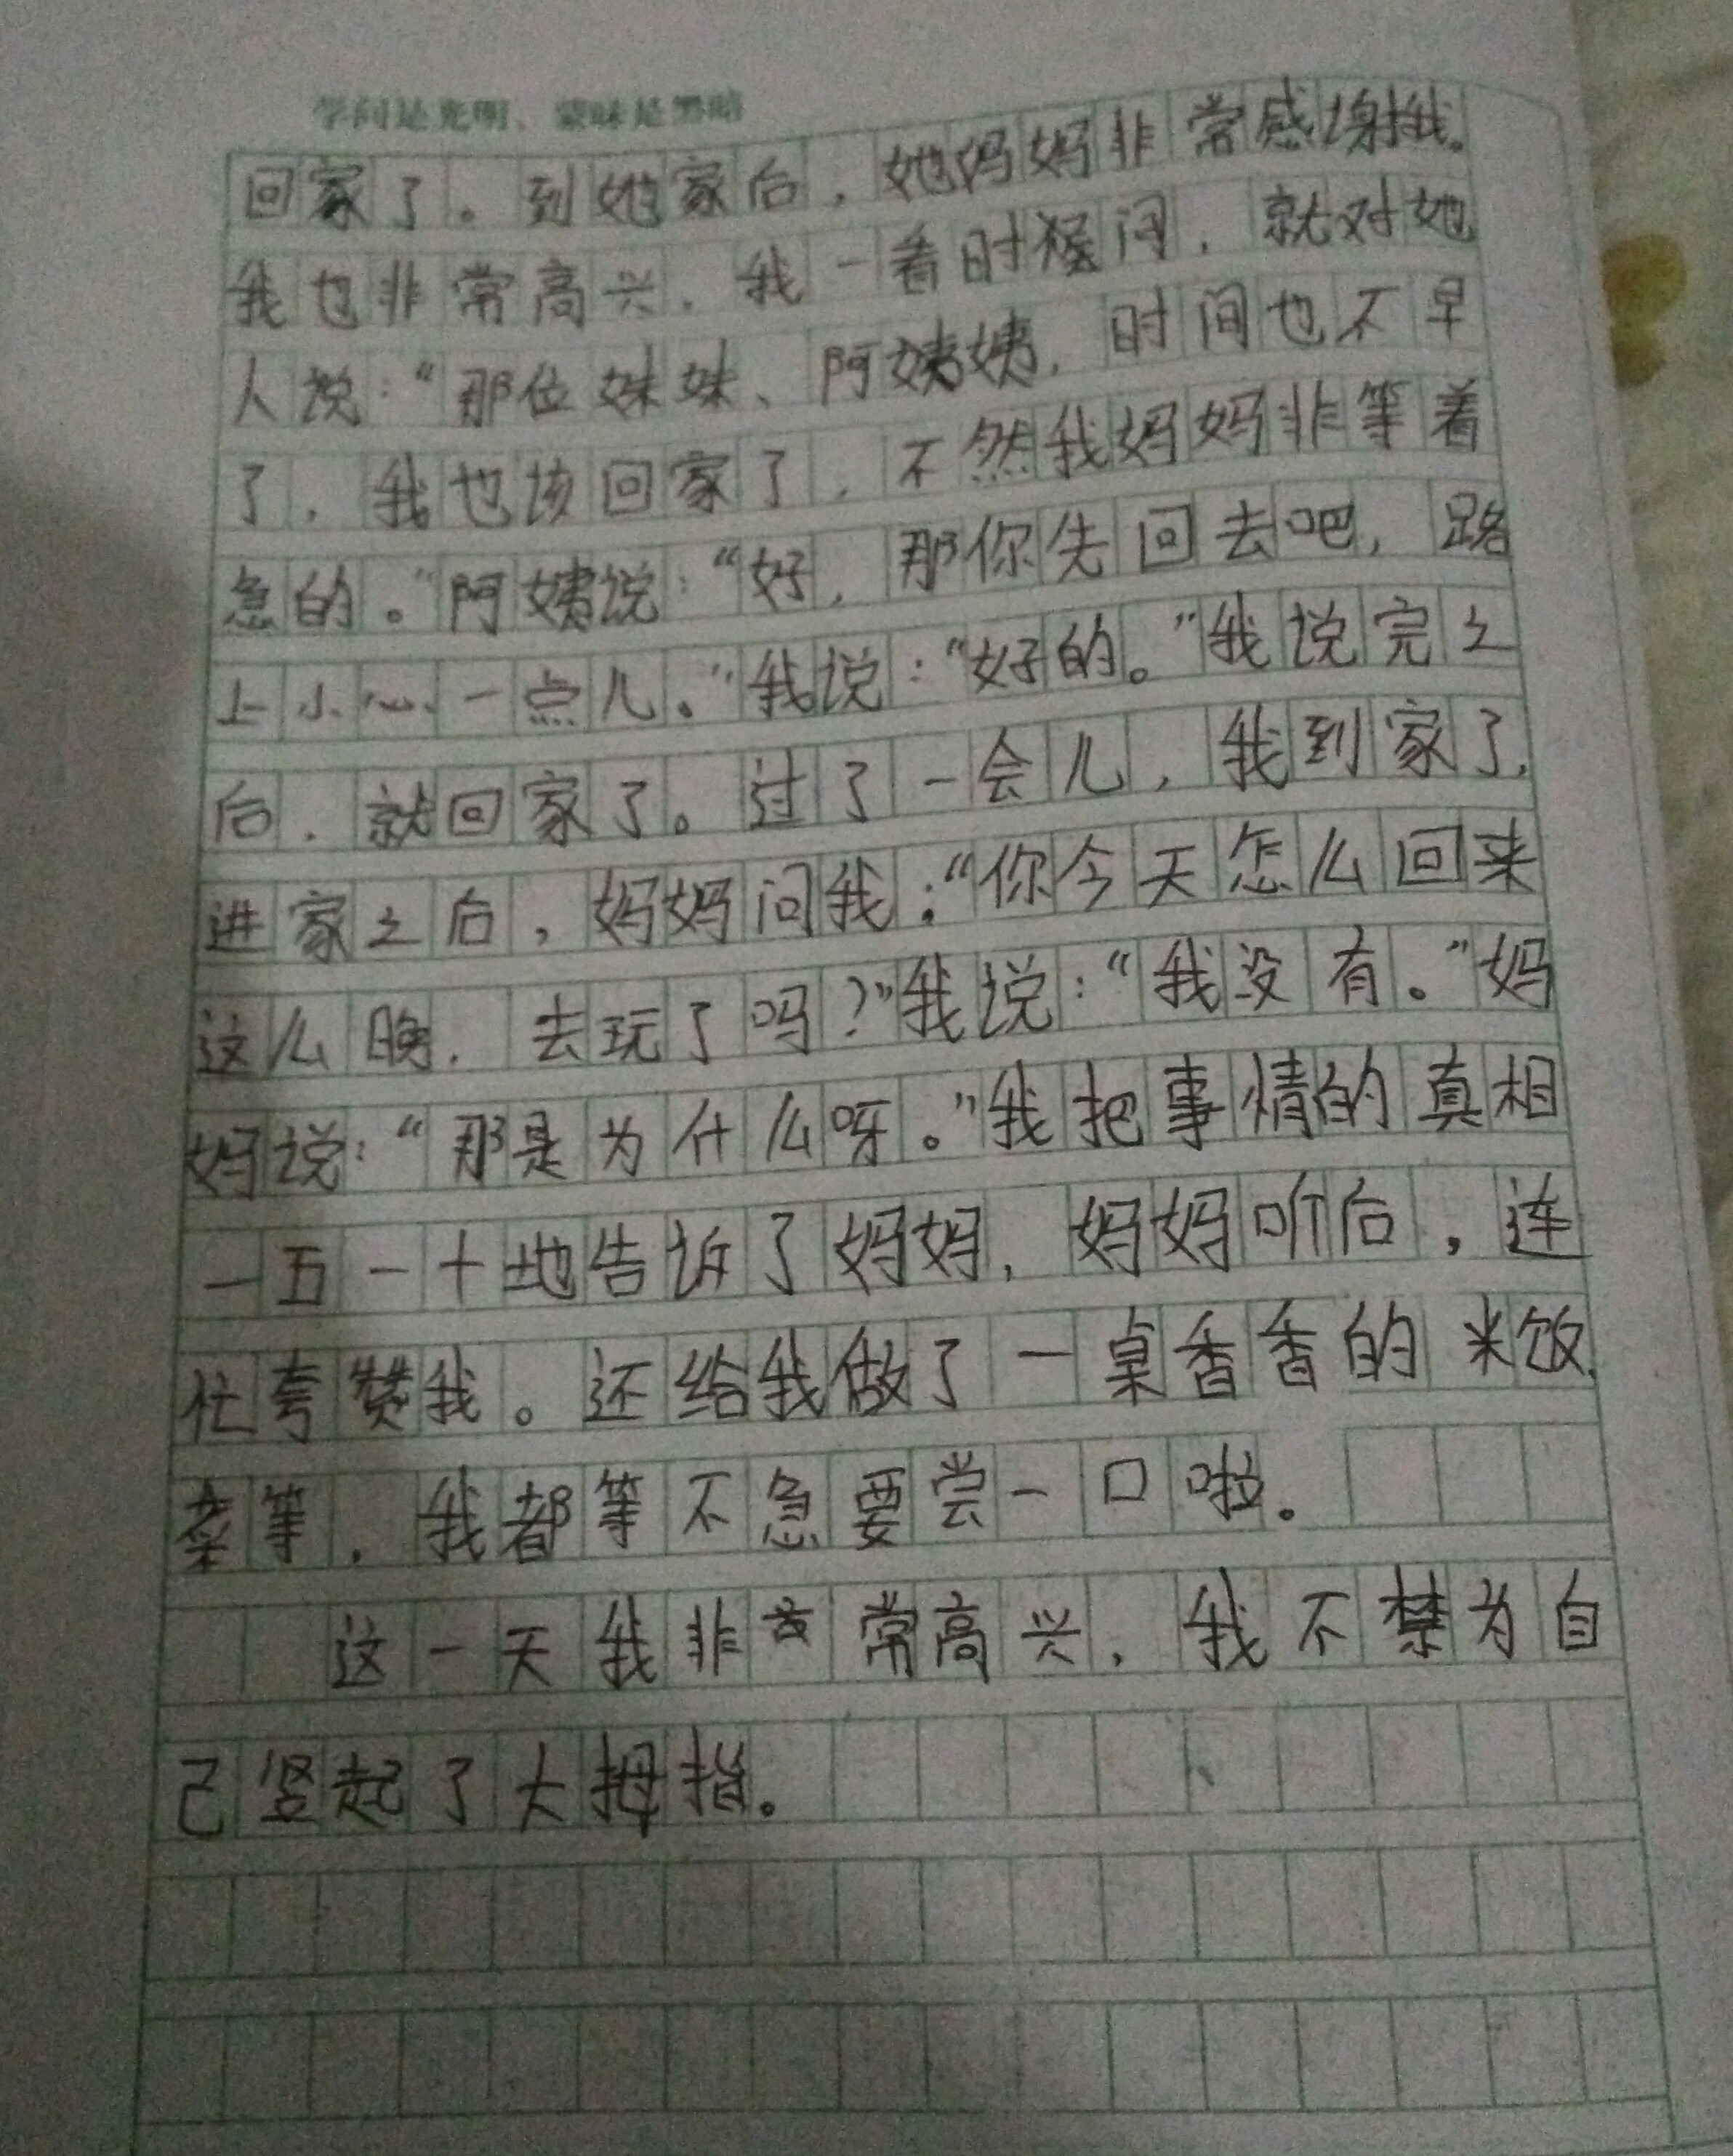 学问是光明、蒙昧是黑暗
回家了。到她家后,她妈妈非常感谢我。
我也非常高兴,我一看时间,就对她
人说:“那位妹妹、阿姨姨,时间也不早
了,我也该回家了,不然我妈妈非等着
急的。”阿姨说:“好,那你先回去吧,路
上小心一点儿。”我说:“好的。”我说完之
后,就回家了。过了一会儿,我到家了,
进家之后,妈妈问我:“你今天怎么回来
这么晚,去玩了吗?”我说:“我没有。”妈
妈说:“那是为什么呀。”我把事情的真相
一五一十地告诉了妈妈,妈妈听后,连
忙夸赞我。还给我做了一桌香香的米饭、
菜等,我都等不急要尝一口啦。
这一天我非常高兴,我不禁为自
己竖起了大拇指。